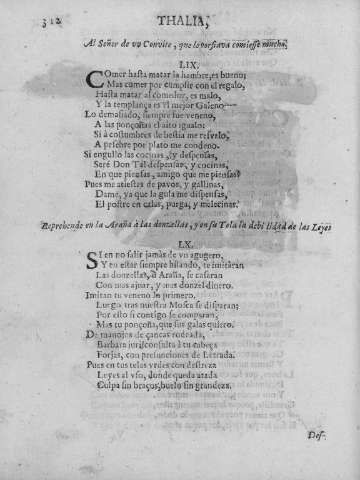 312 THALIA,
Al Señor de vn Convite, que le porfiava comiesse mucho.
LIX.
COmer hasta matar la hambre, es bueno;
Mas comer por cumplir con el regalo,
Hasta matar al comedor, es malo,
Y la templança es el mejor Galeno.
Lo demasiado, siempre fue veneno,
A las ponçoñas el aito igualo:
Si à costumbres de bestia me resvalo,
A pesebre por plato me condeno.
Si engullo las cocinas, y despensas,
Seré Don Tal despensas, y cocinas,
En que piensas, amigo que me piensas?
Pues me atiestas de pavos, y gallinas,
Dame, ya que la gula me dispensas,
El postre en calas, purga, y melecinas.
Reprehende en la Araña à las donzellas, y en su Tela la debilidad de las Leyes
LX.
SI en no salir jamàs de vn agugero,
Y en estar siempre hilando, te imitàran
Las donzellas, ò Araña, se casaran
Con mas ajuar, y mas donzel dinero.
Imitan tu veneno lo primero,
Luego tras nuestra Mosca se disparan;
Por esto si contigo se comparan,
Mas tu ponçoña, que sus galas quiero.
De manojos de çancas rodeada,
Barbara jurisconsulta à tu cabeça
Forjas, con presunciones de Letrada.
Pues en tus telas vrdes con destreza
Leyes al vso, donde queda atada
Culpa sin braços, buelo sin grandeza.
Des-